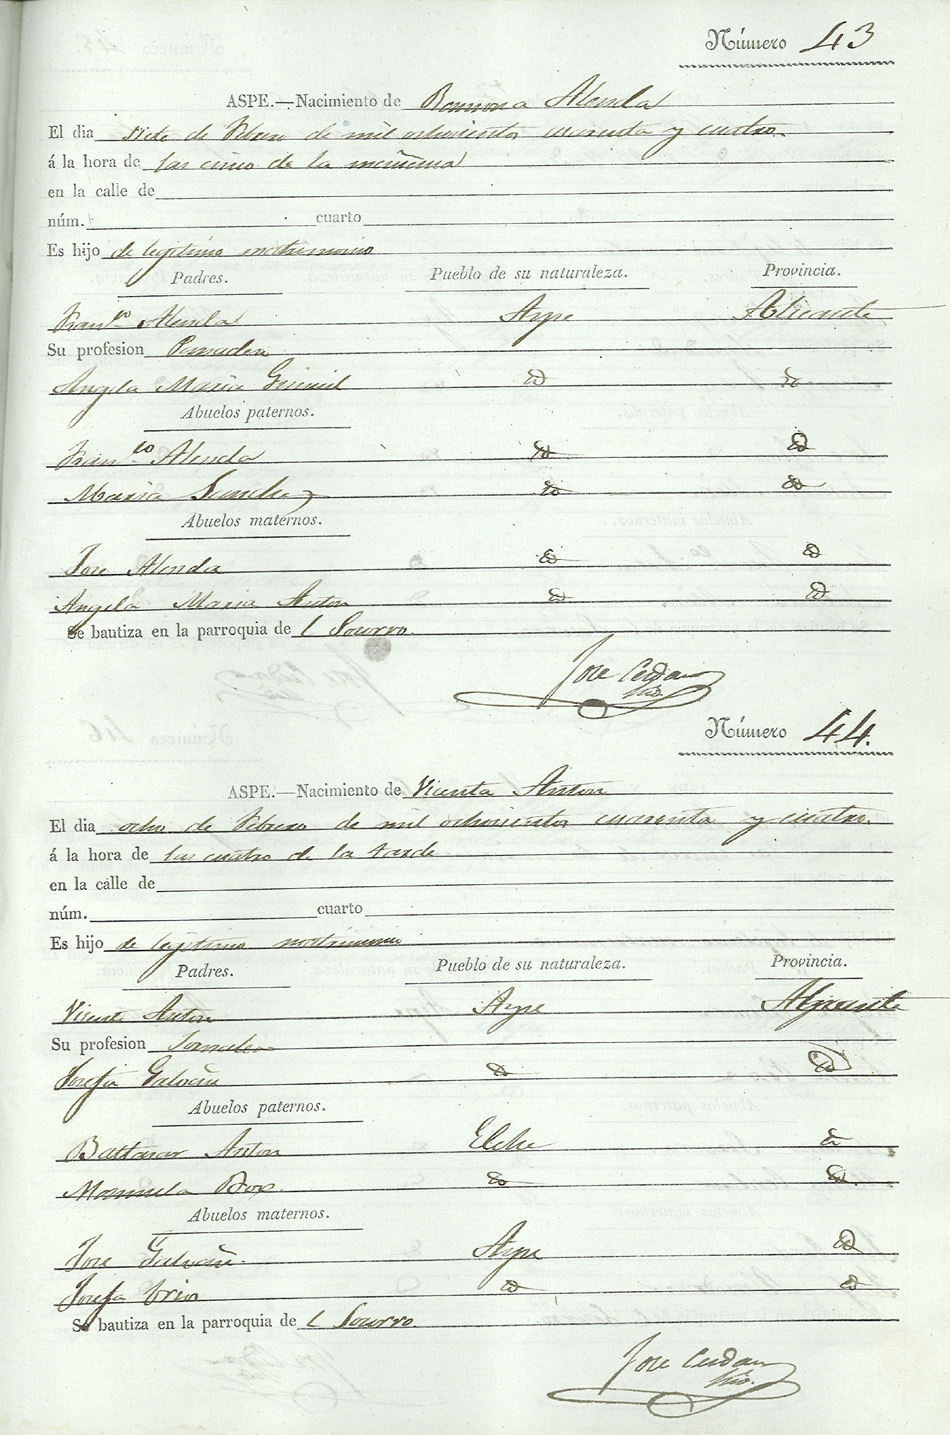 Número 43
ASPE.—Nacimiento de Ramona Alenda
El dia siete de Febrero de mil ochocientos cuarenta y cuatro.
á la hora de las cinco de la mañana
en la calle de
núm. cuarto
Es hijo de legitimo matrimonio
Padres. Pueblo de su naturaleza. Provincia.
Fran.co Alenda Aspe Alicante
Su profesion
Angela Maria id id
Abuelos paternos.
Fran.co Alenda id id
Maria Sanchez id id
Abuelos maternos.
Jose Alenda id id
Angela Maria Anton id id
Se bautiza en la parroquia de l Socorro.
Jose Cerdan
Srio.
Número 44.
ASPE.—Nacimiento de Vicenta Anton
El dia ocho de Febrero de mil ochocientos cuarenta y cuatro.
á la hora de las cuatro de la tarde
en la calle de
núm. cuarto
Es hijo de legitimo matrimonio
Padres. Pueblo de su naturaleza. Provincia.
Vicente Anton Aspe Alicante
Su profesion
Josefa Galvañ id id
Abuelos paternos.
Baltasar Anton Elche id
Manuela Box. id id.
Abuelos maternos.
Jose Galvañ. Aspe id
Josefa id id
Se bautiza en la parroquia de l Socorro.
Jose Cerdan
Srio.